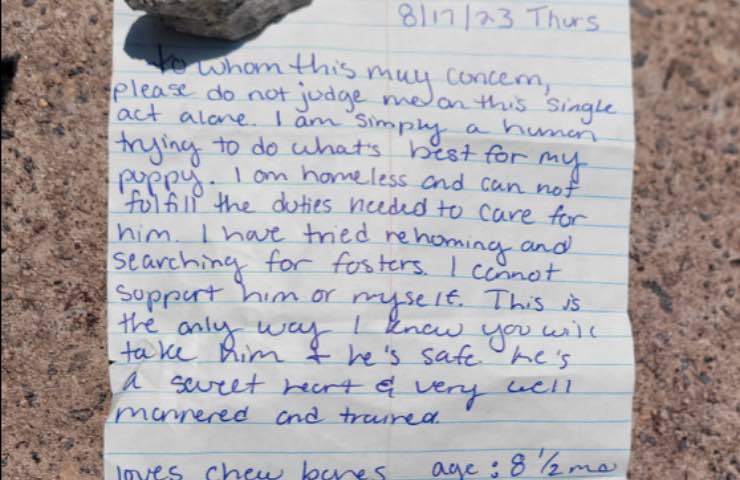 8/17/23 Thurs
to whom this may concern,
please do not judge me on this single
act alone. I am simply a human
trying to do what's best for my
puppy. I am homeless and can not
fulfill the duties needed to care for
him. I have tried rehoming and
searching for fosters. I cannot
support him or myself. This is
the only way I know you will
take him & he's safe he's
a sweet heart & very well
mannered and trained.
loves chew bones age: 8 1/2 mo